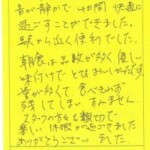 音が静かで 4日間 快適に
過ごすことができました。
駅から近く便利でした。
朝食は品数が多く 優しい
味付けで とてもおいしかったです。
量が多くて 食べきれず
残してしまい すみません。
スタッフの方々も親切で
楽しい 休暇が過ごせました
ありがとうございました